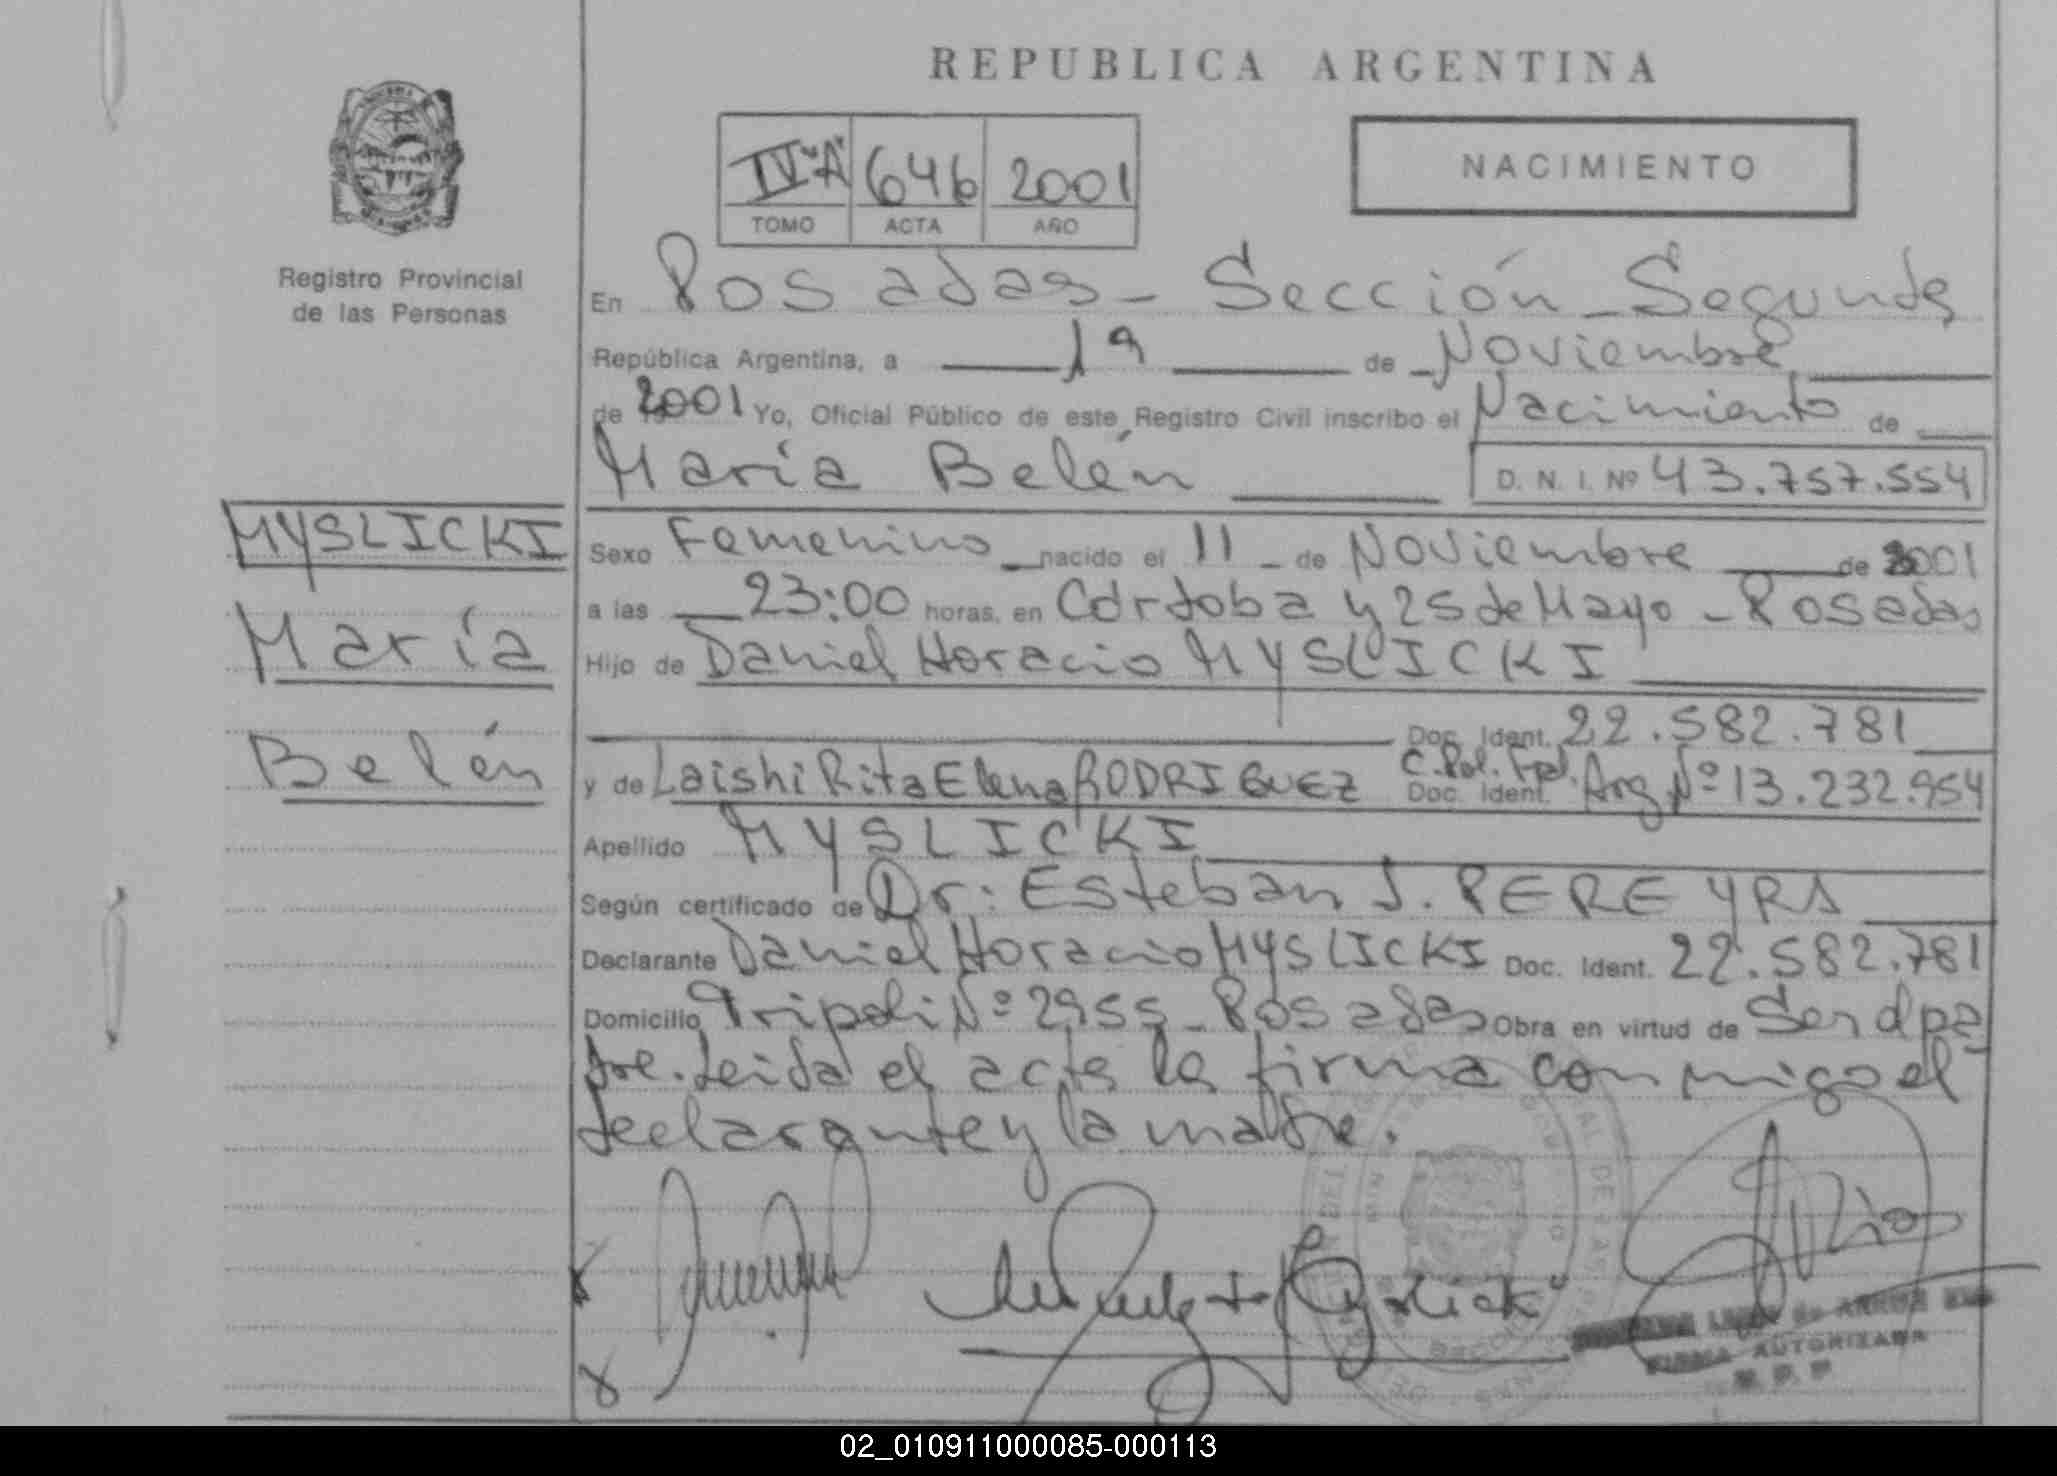 REPUBLICA ARGENTINA
IV "A" 646 2001
TOMO ACTA AÑO
NACIMIENTO
Registro Provincial
de las Personas
En Posadas - Sección Segunda
República Argentina, a 19 de Noviembre
de 2001 Yo, Oficial Público de este Registro Civil inscribo el Nacimiento de
María Belén D. N. I. Nº 43.757.554
MYSLICKI
María
Belén
Sexo Femenino nacido el 11 de Noviembre de 2001
a las 23:00 horas, en Córdoba y 25 de Mayo - Posadas
Hijo de Daniel Horacio MYSLICKI
Doc. Ident. 22.582.781
y de Laishi Rita Elena RODRIGUEZ C. Pol. Fpl. Doc. Ident. Arg Nº 13.232.954
Apellido MYSLICKI
Según certificado de Dr: Esteban J. PEREYRA
Declarante Daniel Horacio MYSLICKI Doc. Ident. 22.582.781
Domicilio Tripoli Nº 2955 - Posadas Obra en virtud de Ser el pa
dre. Leida el acta la firma conmigo el
declarante y la madre.
FIRMA AUTORIZADA
R. P. P
02_010911000085-000113